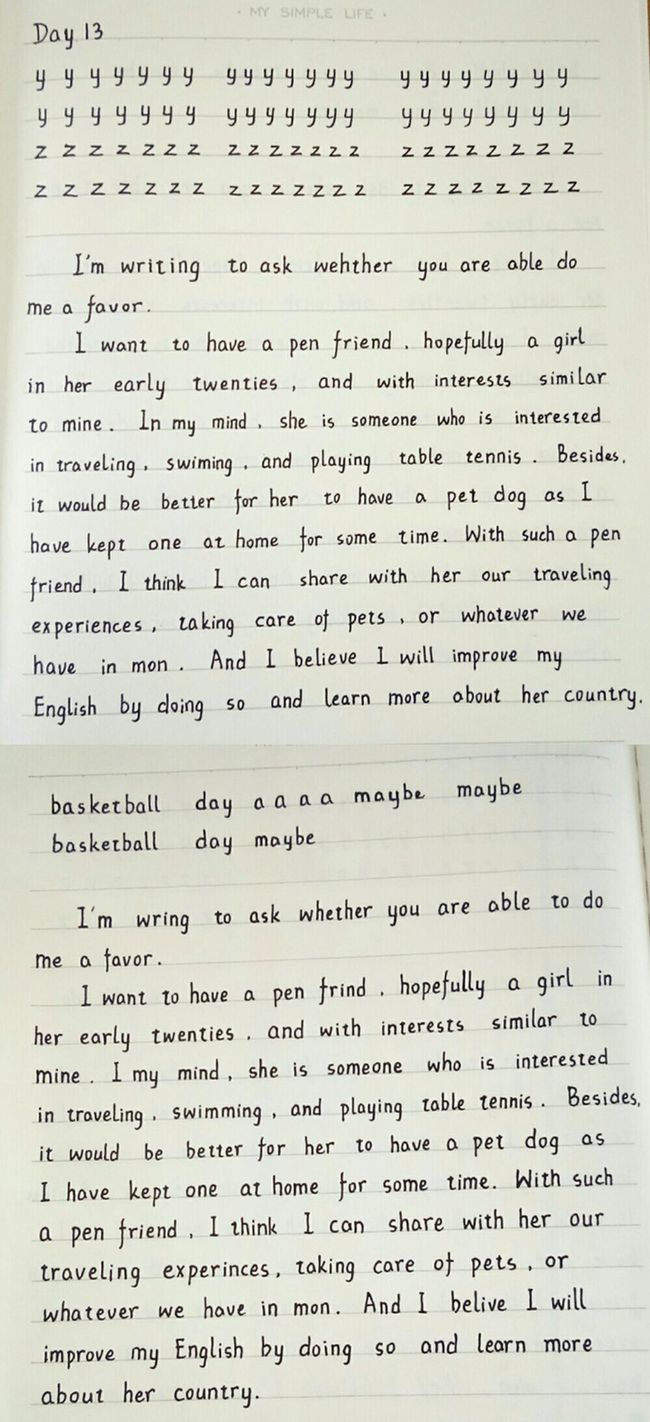 · MY SIMPLE LIFE ·
Day 13
y y y y y y y y y y y y y y y y y y y y y y
y y y y y y y y y y y y y y y y y y y y y y
z z z z z z z z z z z z z z z z z z z z z z
z z z z z z z z z z z z z z z z z z z z z z
I'm writing to ask wehther you are able do
me a favor.
I want to have a pen friend, hopefully a girl
in her early twenties, and with interests similar
to mine. In my mind, she is someone who is interested
in traveling, swiming, and playing table tennis. Besides,
it would be better for her to have a pet dog as I
have kept one at home for some time. With such a pen
friend, I think I can share with her our traveling
experiences, taking care of pets, or whatever we
have in mon. And I believe I will improve my
English by doing so and learn more about her country.
basketball day a a a a maybe maybe
basketball day maybe
I'm wring to ask whether you are able to do
me a favor.
I want to have a pen frind, hopefully a girl in
her early twenties, and with interests similar to
mine. I my mind, she is someone who is interested
in traveling, swimming, and playing table tennis. Besides,
it would be better for her to have a pet dog as
I have kept one at home for some time. With such
a pen friend, I think I can share with her our
traveling experinces, taking care of pets, or
whatever we have in mon. And I belive I will
improve my English by doing so and learn more
about her country.